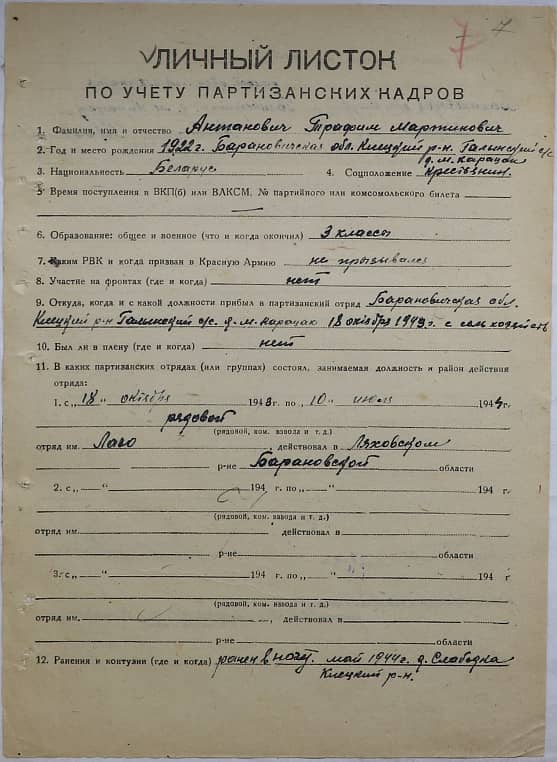 7 7
ЛИЧНЫЙ ЛИСТОК
ПО УЧЕТУ ПАРТИЗАНСКИХ КАДРОВ
1. Фамилия, имя и отчество Антанович Трафим Мартинович
2. Год и место рождения 1922г. Барановичская обл. Клецкий р-н. Галынский с/с
д. М. Карацаи
3. Национальность Беларус 4. Соцположение Крестьянин.
5. Время поступления в ВКП(б) или ВЛКСМ, № партийного или комсомольского билета
—
6. Образование: общее и военное (что и когда окончил) 3 классы
7. Каким РВК и когда призван в Красную Армию не прызывался
8. Участие на фронтах (где и когда) нет
9. Откуда, когда и с какой должности прибыл в партизанский отряд Барановичская обл.
Клецкий р-н Галынский с/с. д. М. Карацаю 18 октября 1943г. с сельхозяйств
10. Был ли в плену (где и когда) нет
11. В каких партизанских отрядах (или группах) состоял, занимаемая должность и район действия
отряда:
1. с „18" октября 1943 г. по „10" июля 1944 г.
рядовой
(рядовой, ком. взвола и т. д.)
отряд им. Лазо, действовал в Ляховском
р-не Барановской области
2. с „ — " 194 г. по „ — " 194 г.
(рядовой, ком. взвода и т. д.)
отряд им. действовал в
р-не области
3. с „ — " 194 г. по „ — " 194 г
(рядовой, ком. взвода и т. д.)
отряд им. , действовал в
р-не области
12. Ранения и контузии (где и когда) ранен в ногу. май 1944г. д. Слабодка
Клецкий р-н.